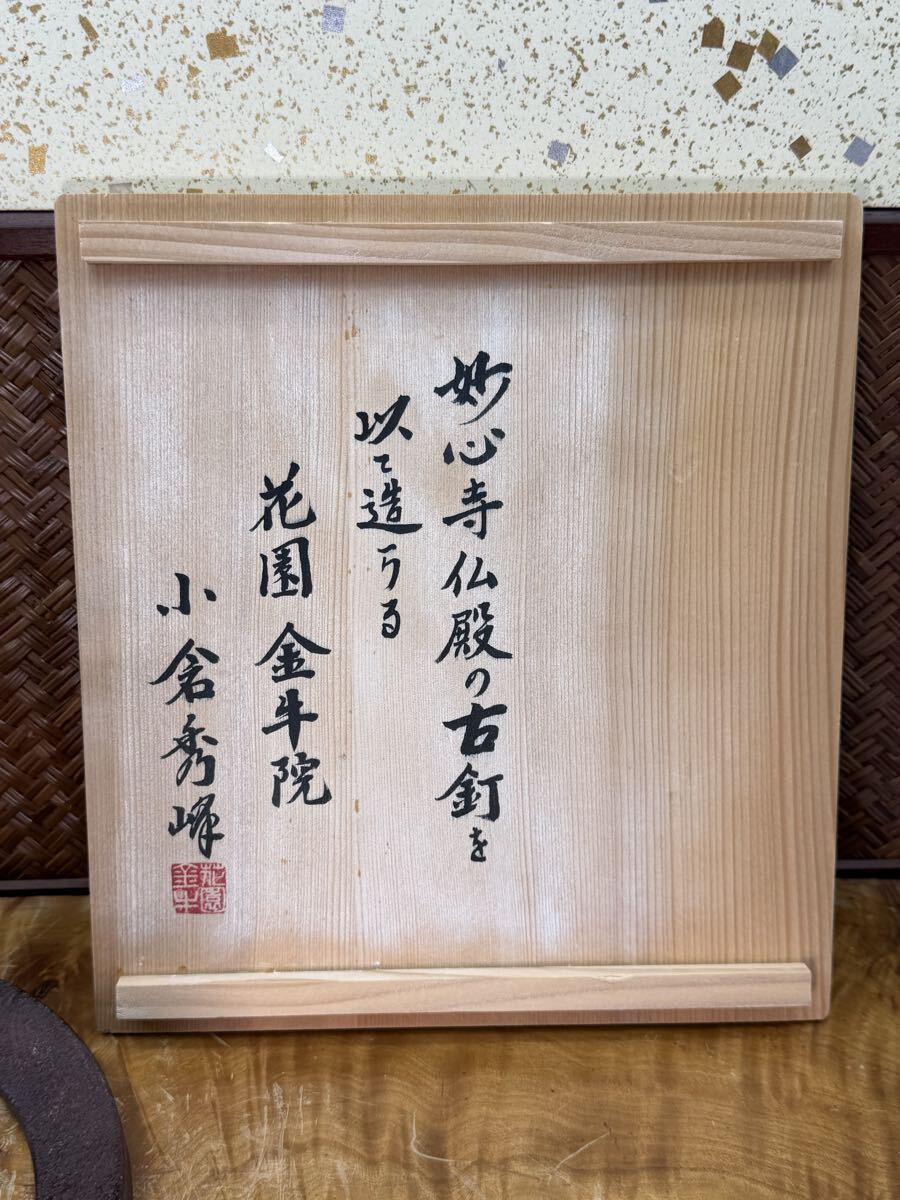 妙心寺仏殿の古釘を
以て造らる
花園 金牛院
小倉秀峰
花園
金牛